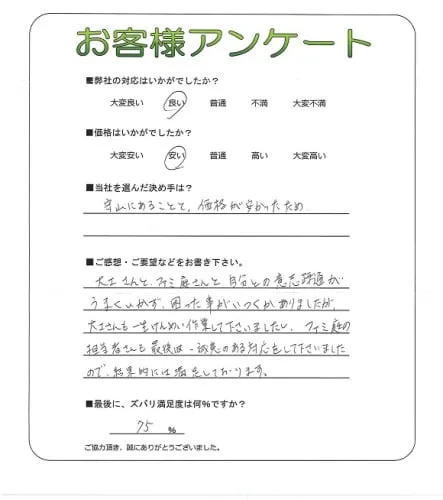 お客様アンケート
■弊社の対応はいかがでしたか?
大変良い 良い 普通 不満 大変不満
■価格はいかがでしたか?
大変安い 安い 普通 高い 大変高い
■当社を選んだ決め手は?
守山にあることと、価格が安かったため
■ご感想・ご要望などをお書き下さい。
大工さんと、ファミ庭さんと自分との意志疎通が
うまくいかず、困った事がいくつかありましたが、
大工さんも一生けんめい作業して下さいましたし、ファミ庭の
担当者さんも最後は誠意のある対応をして下さいました
ので、結果的には満足しております。
■最後に、ズバリ満足度は何%ですか?
75 %
ご協力頂き、誠にありがとうございました。